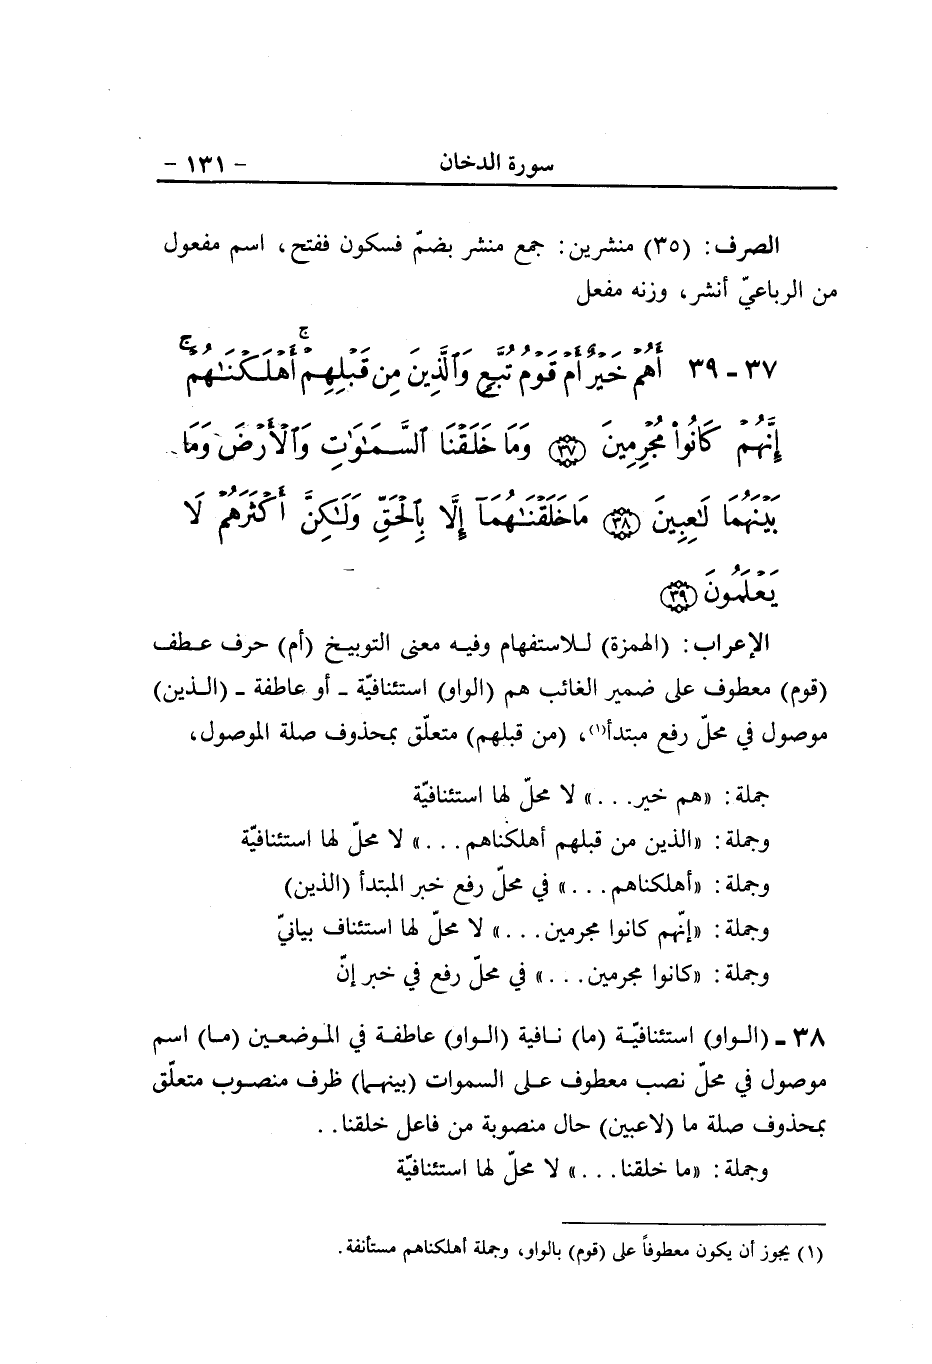 سورة الدخان - ١٣١ -
الصرف: (٣٥) منشرين: جمع منشر بضمّ فسكون ففتح، اسم مفعول
من الرباعيّ أنشر، وزنه مفعل
٣٧ - ٣٩ أَهُمْ خَيْرٌ أَمْ قَوْمُ تُبَّعٍ وَٱلَّذِينَ مِن قَبْلِهِمْ ۚ أَهْلَكْنَـٰهُمْ ۚ
إِنَّهُمْ كَانُوا۟ مُجْرِمِينَ ﴿٣٧﴾ وَمَا خَلَقْنَا ٱلسَّمَـٰوَٰتِ وَٱلْأَرْضَ وَمَا
بَيْنَهُمَا لَـٰعِبِينَ ﴿٣٨﴾ مَا خَلَقْنَـٰهُمَآ إِلَّا بِٱلْحَقِّ وَلَـٰكِنَّ أَكْثَرَهُمْ لَا
يَعْلَمُونَ ﴿٣٩﴾
الإعراب: (الهمزة) للاستفهام وفيه معنى التوبيخ (أم) حرف عطف
(قوم) معطوف على ضمير الغائب هم (الواو) استئنافيّة - أو عاطفة - (الذين)
موصول في محلّ رفع مبتدأ(١)، (من قبلهم) متعلّق بمحذوف صلة الموصول،
جملة: «هم خير...» لا محلّ لها استئنافيّة
وجملة: «الذين من قبلهم أهلكناهم...» لا محلّ لها استئنافيّة
وجملة: «أهلكناهم...» في محلّ رفع خبر المبتدأ (الذين)
وجملة: «إنّهم كانوا مجرمين...» لا محلّ لها استئناف بيانيّ
وجملة: «كانوا مجرمين...» في محلّ رفع في خبر إنّ
٣٨ - (الواو) استئنافيّة (ما) نافية (الواو) عاطفة في الموضعين (ما) اسم
موصول في محلّ نصب معطوف على السموات (بينهما) ظرف منصوب متعلّق
بمحذوف صلة ما (لاعبين) حال منصوبة من فاعل خلقنا..
وجملة: «ما خلقنا...» لا محلّ لها استئنافيّة
(١) يجوز أن يكون معطوفاً على (قوم) بالواو، وجملة أهلكناهم مستأنفة.